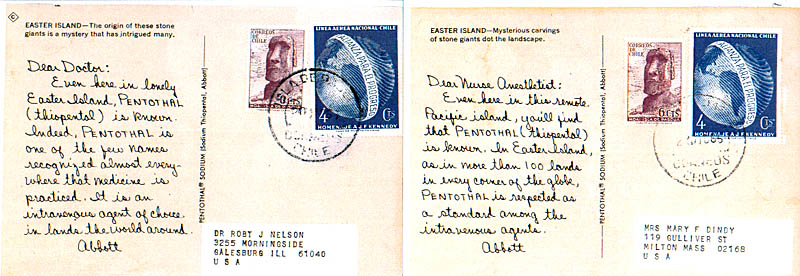 ©
EASTER ISLAND—The origin of these stone
giants is a mystery that has intrigued many.
Dear Doctor:
Even here in lonely
Easter Island, PENTOTHAL
(thiopental) is known.
Indeed, PENTOTHAL is
one of the few names
recognized almost every-
where that medicine is
practiced. It is an
intravenous agent of choice
in lands the world around.
Abbott
PENTOTHAL® SODIUM (Sodium Thiopental, Abbott)
CORREOS
DE CHILE
LINEA AEREA NACIONAL CHILE
ALIANZA PARA EL PROGRESO
4 Cts
HOMENAJE A J.F. KENNEDY
ISLA DE
CORREOS
CHILE
DR ROBT J NELSON
3255 MORNINGSIDE
GALESBURG ILL 61040
U S A
EASTER ISLAND—Mysterious carvings
of stone giants dot the landscape.
Dear Nurse Anesthetist:
Even here in this remote
Pacific island, you'll find
that PENTOTHAL (thiopental)
is known. In Easter Island,
as in more than 100 lands
in every corner of the globe,
PENTOTHAL is respected as
a standard among the
intravenous agents.
Abbott
PENTOTHAL® SODIUM (Sodium Thiopental, Abbott)
CORREOS
DE CHILE
6 Cts
LINEA AEREA NACIONAL CHILE
ALIANZA PARA EL PROGRESO
4 Cts
HOMENAJE A J.F. KENNEDY
CORREOS
CHILE
MRS MARY F DINDY
119 GULLIVER ST
MILTON MASS 02168
U S A